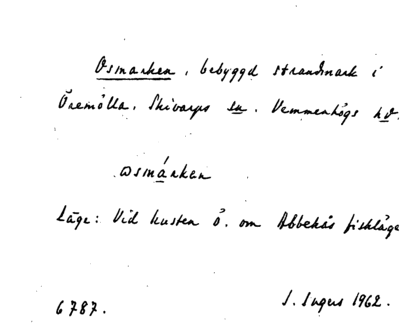 Osmarken, bebyggd strandmark i
Öremölla, Skivarps sn. Vemmenhögs hd.
osmárken
Läge: Vid kusten ö. om Abbekås fiskläge
6787.
S. Ingers 1962.